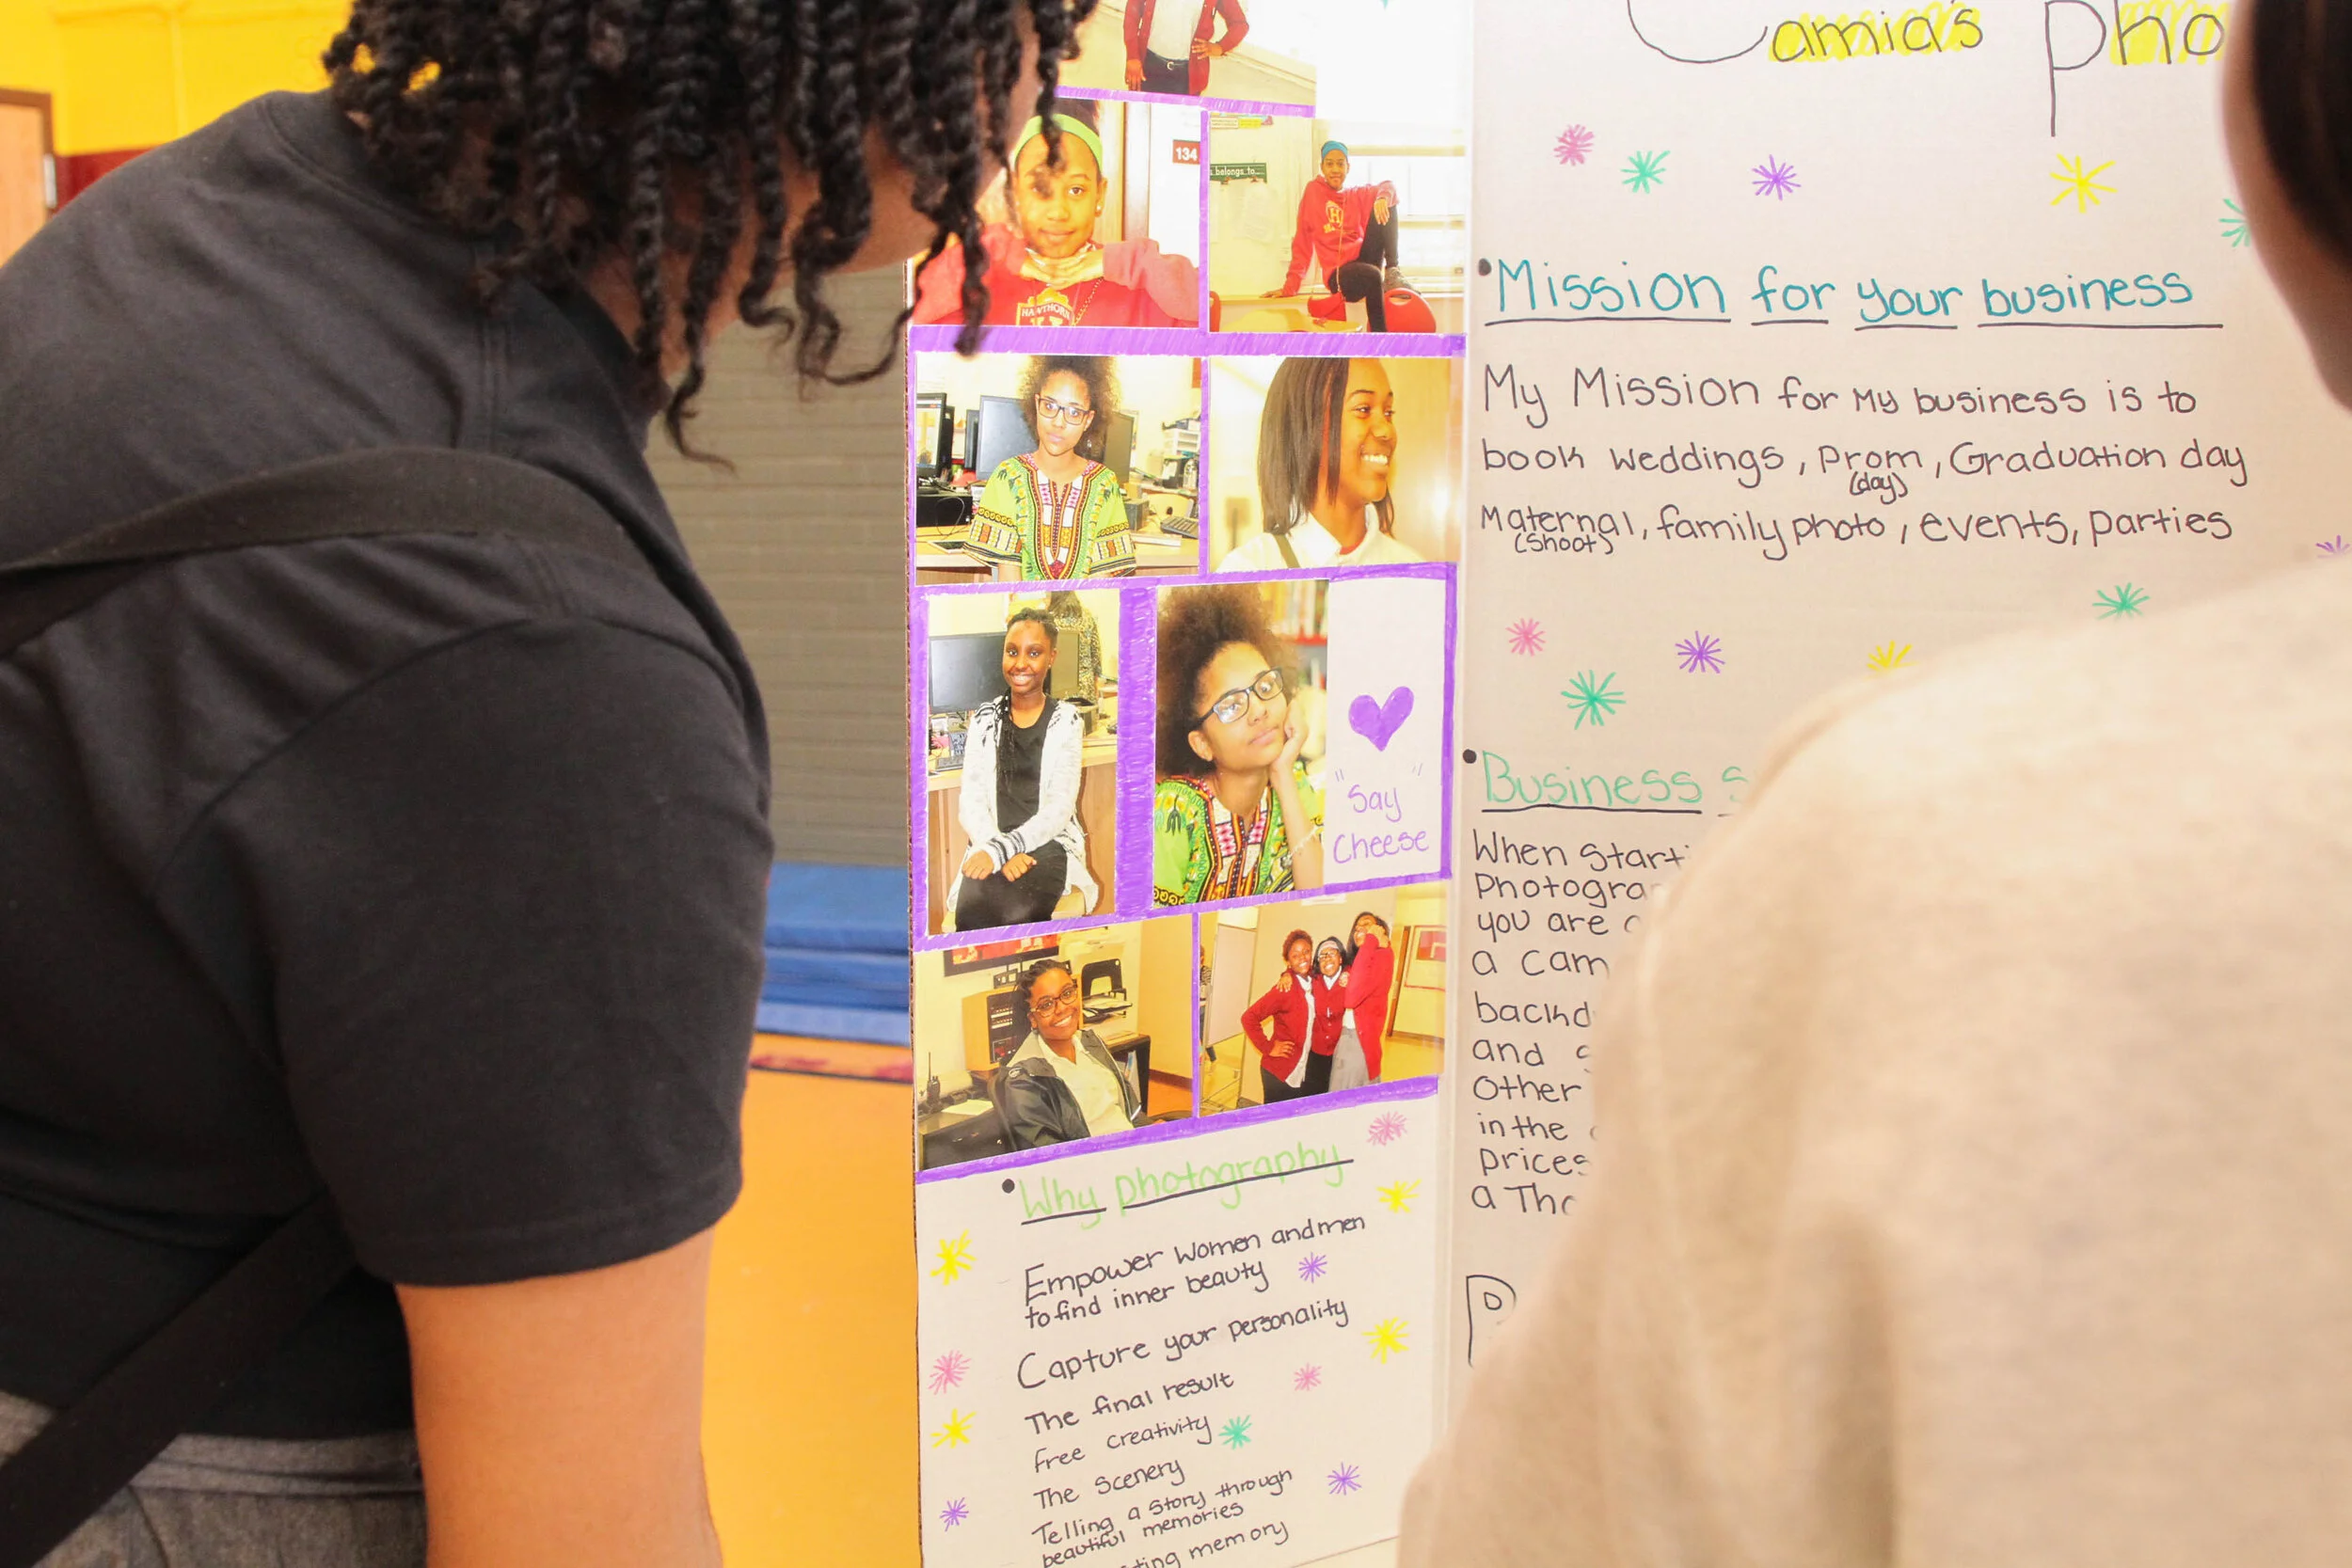 Camia's Pho
134
s belongs to...
HAWTHORN
H
"Say
Cheese"
Why photography
Empower Women and men
to find inner beauty
Capture your personality
The final result
free creativity
The Scenery
Telling a Story through
beautiful memories
memory
Mission for your business
My Mission for My business is to
book weddings, Prom, Graduation day
(day)
Maternal, family photo, events, parties
(Shoot)
Business S
When Starti
Photogra
you are
a cam
backd
and
Other
in the
prices
a Tho
P